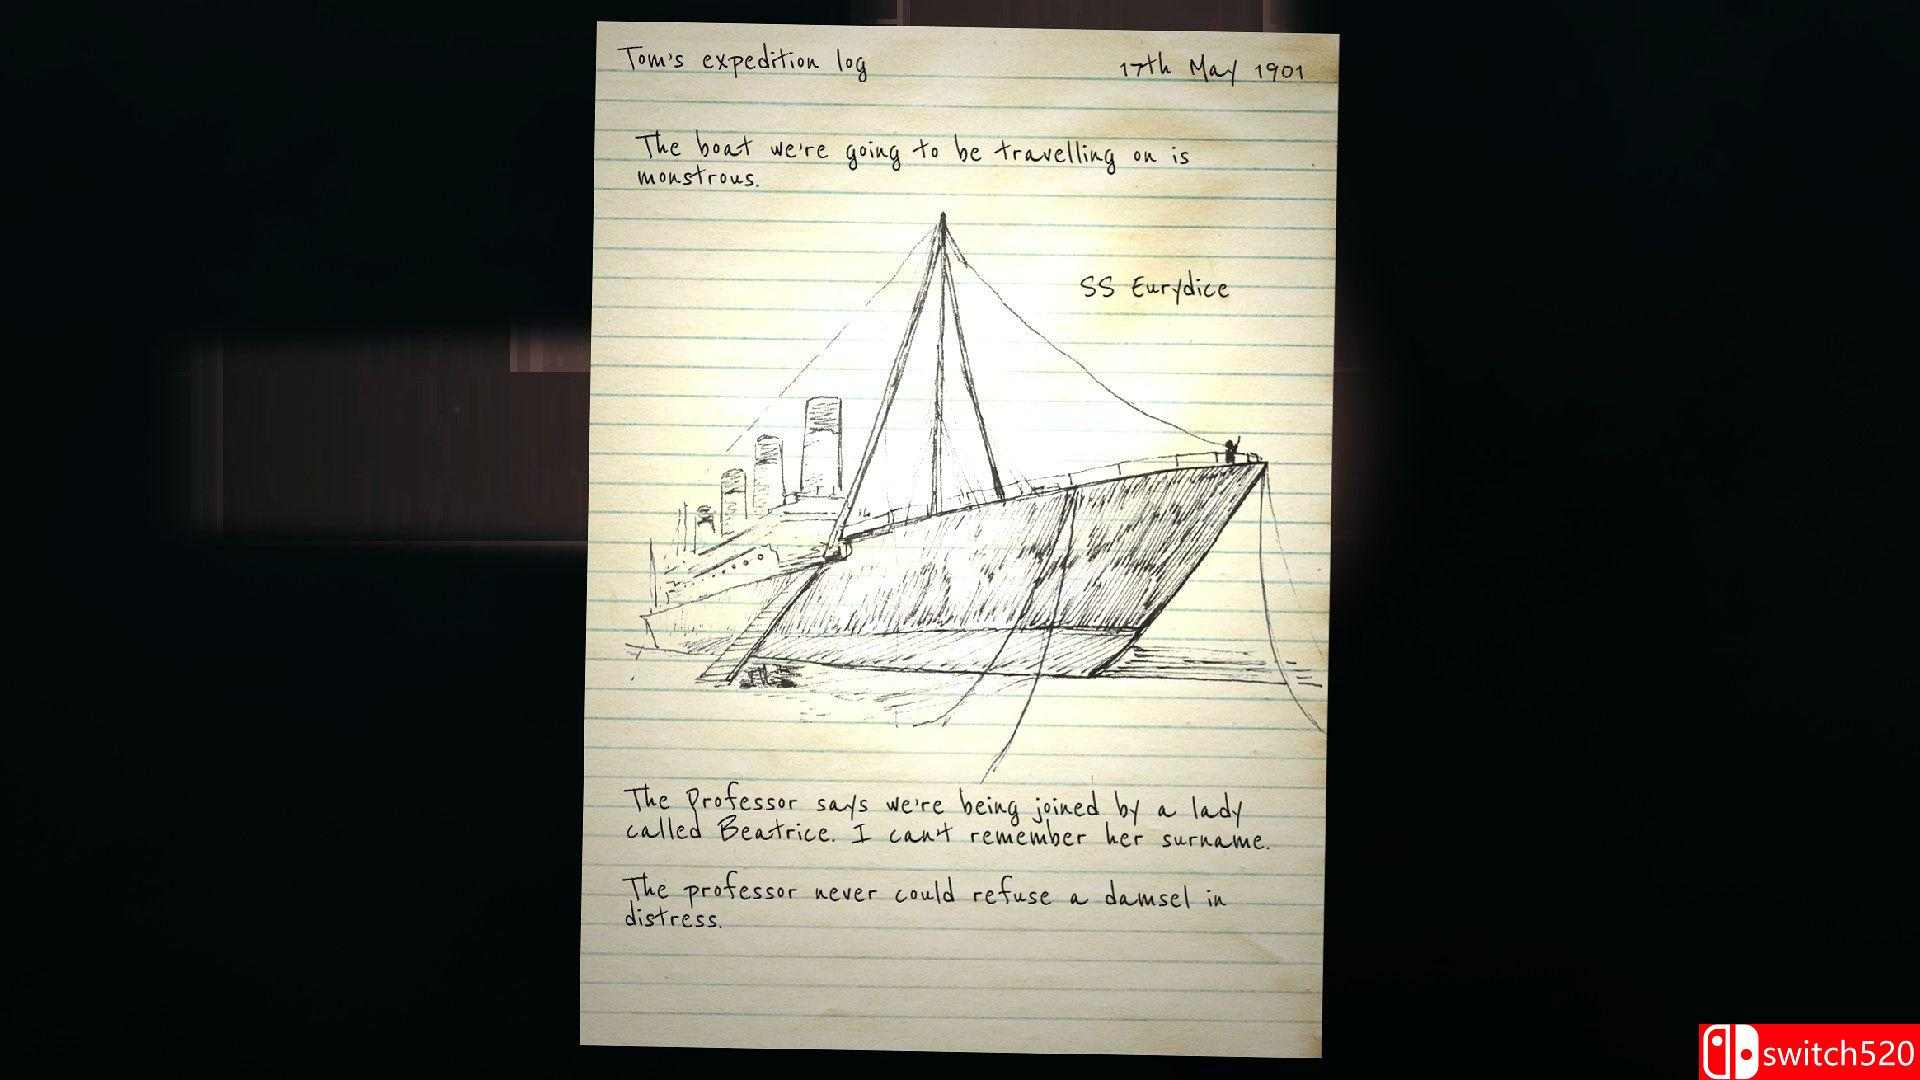 Tom's expedition log
17th May 1901
The boat we're going to be travelling on is
monstrous.
SS Eurydice
The Professor says we're being joined by a lady
called Beatrice. I can't remember her surname.
The professor never could refuse a damsel in
distress.
switch520